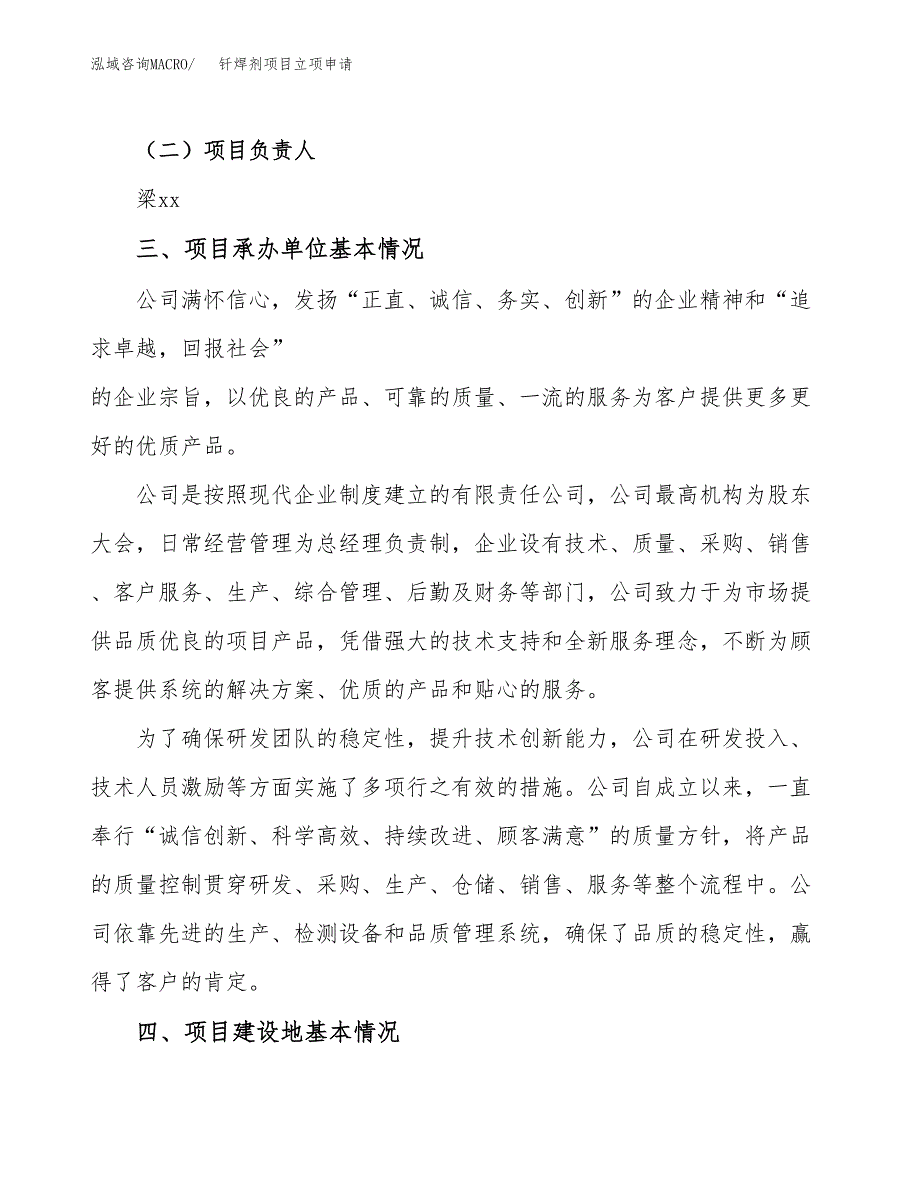 泓域咨询MACRO/ 钎焊剂项目立项申请
（二）项目负责人
梁xx
三、项目承办单位基本情况
公司满怀信心，发扬“正直、诚信、务实、创新”的企业精神和“追
求卓越，回报社会”
的企业宗旨，以优良的产品、可靠的质量、一流的服务为客户提供更多更
好的优质产品。
公司是按照现代企业制度建立的有限责任公司，公司最高机构为股东
大会，日常经营管理为总经理负责制，企业设有技术、质量、采购、销售
、客户服务、生产、综合管理、后勤及财务等部门，公司致力于为市场提
供品质优良的项目产品，凭借强大的技术支持和全新服务理念，不断为顾
客提供系统的解决方案、优质的产品和贴心的服务。
为了确保研发团队的稳定性，提升技术创新能力，公司在研发投入、
技术人员激励等方面实施了多项行之有效的措施。公司自成立以来，一直
奉行“诚信创新、科学高效、持续改进、顾客满意”的质量方针，将产品
的质量控制贯穿研发、采购、生产、仓储、销售、服务等整个流程中。公
司依靠先进的生产、检测设备和品质管理系统，确保了品质的稳定性，赢
得了客户的肯定。
四、项目建设地基本情况